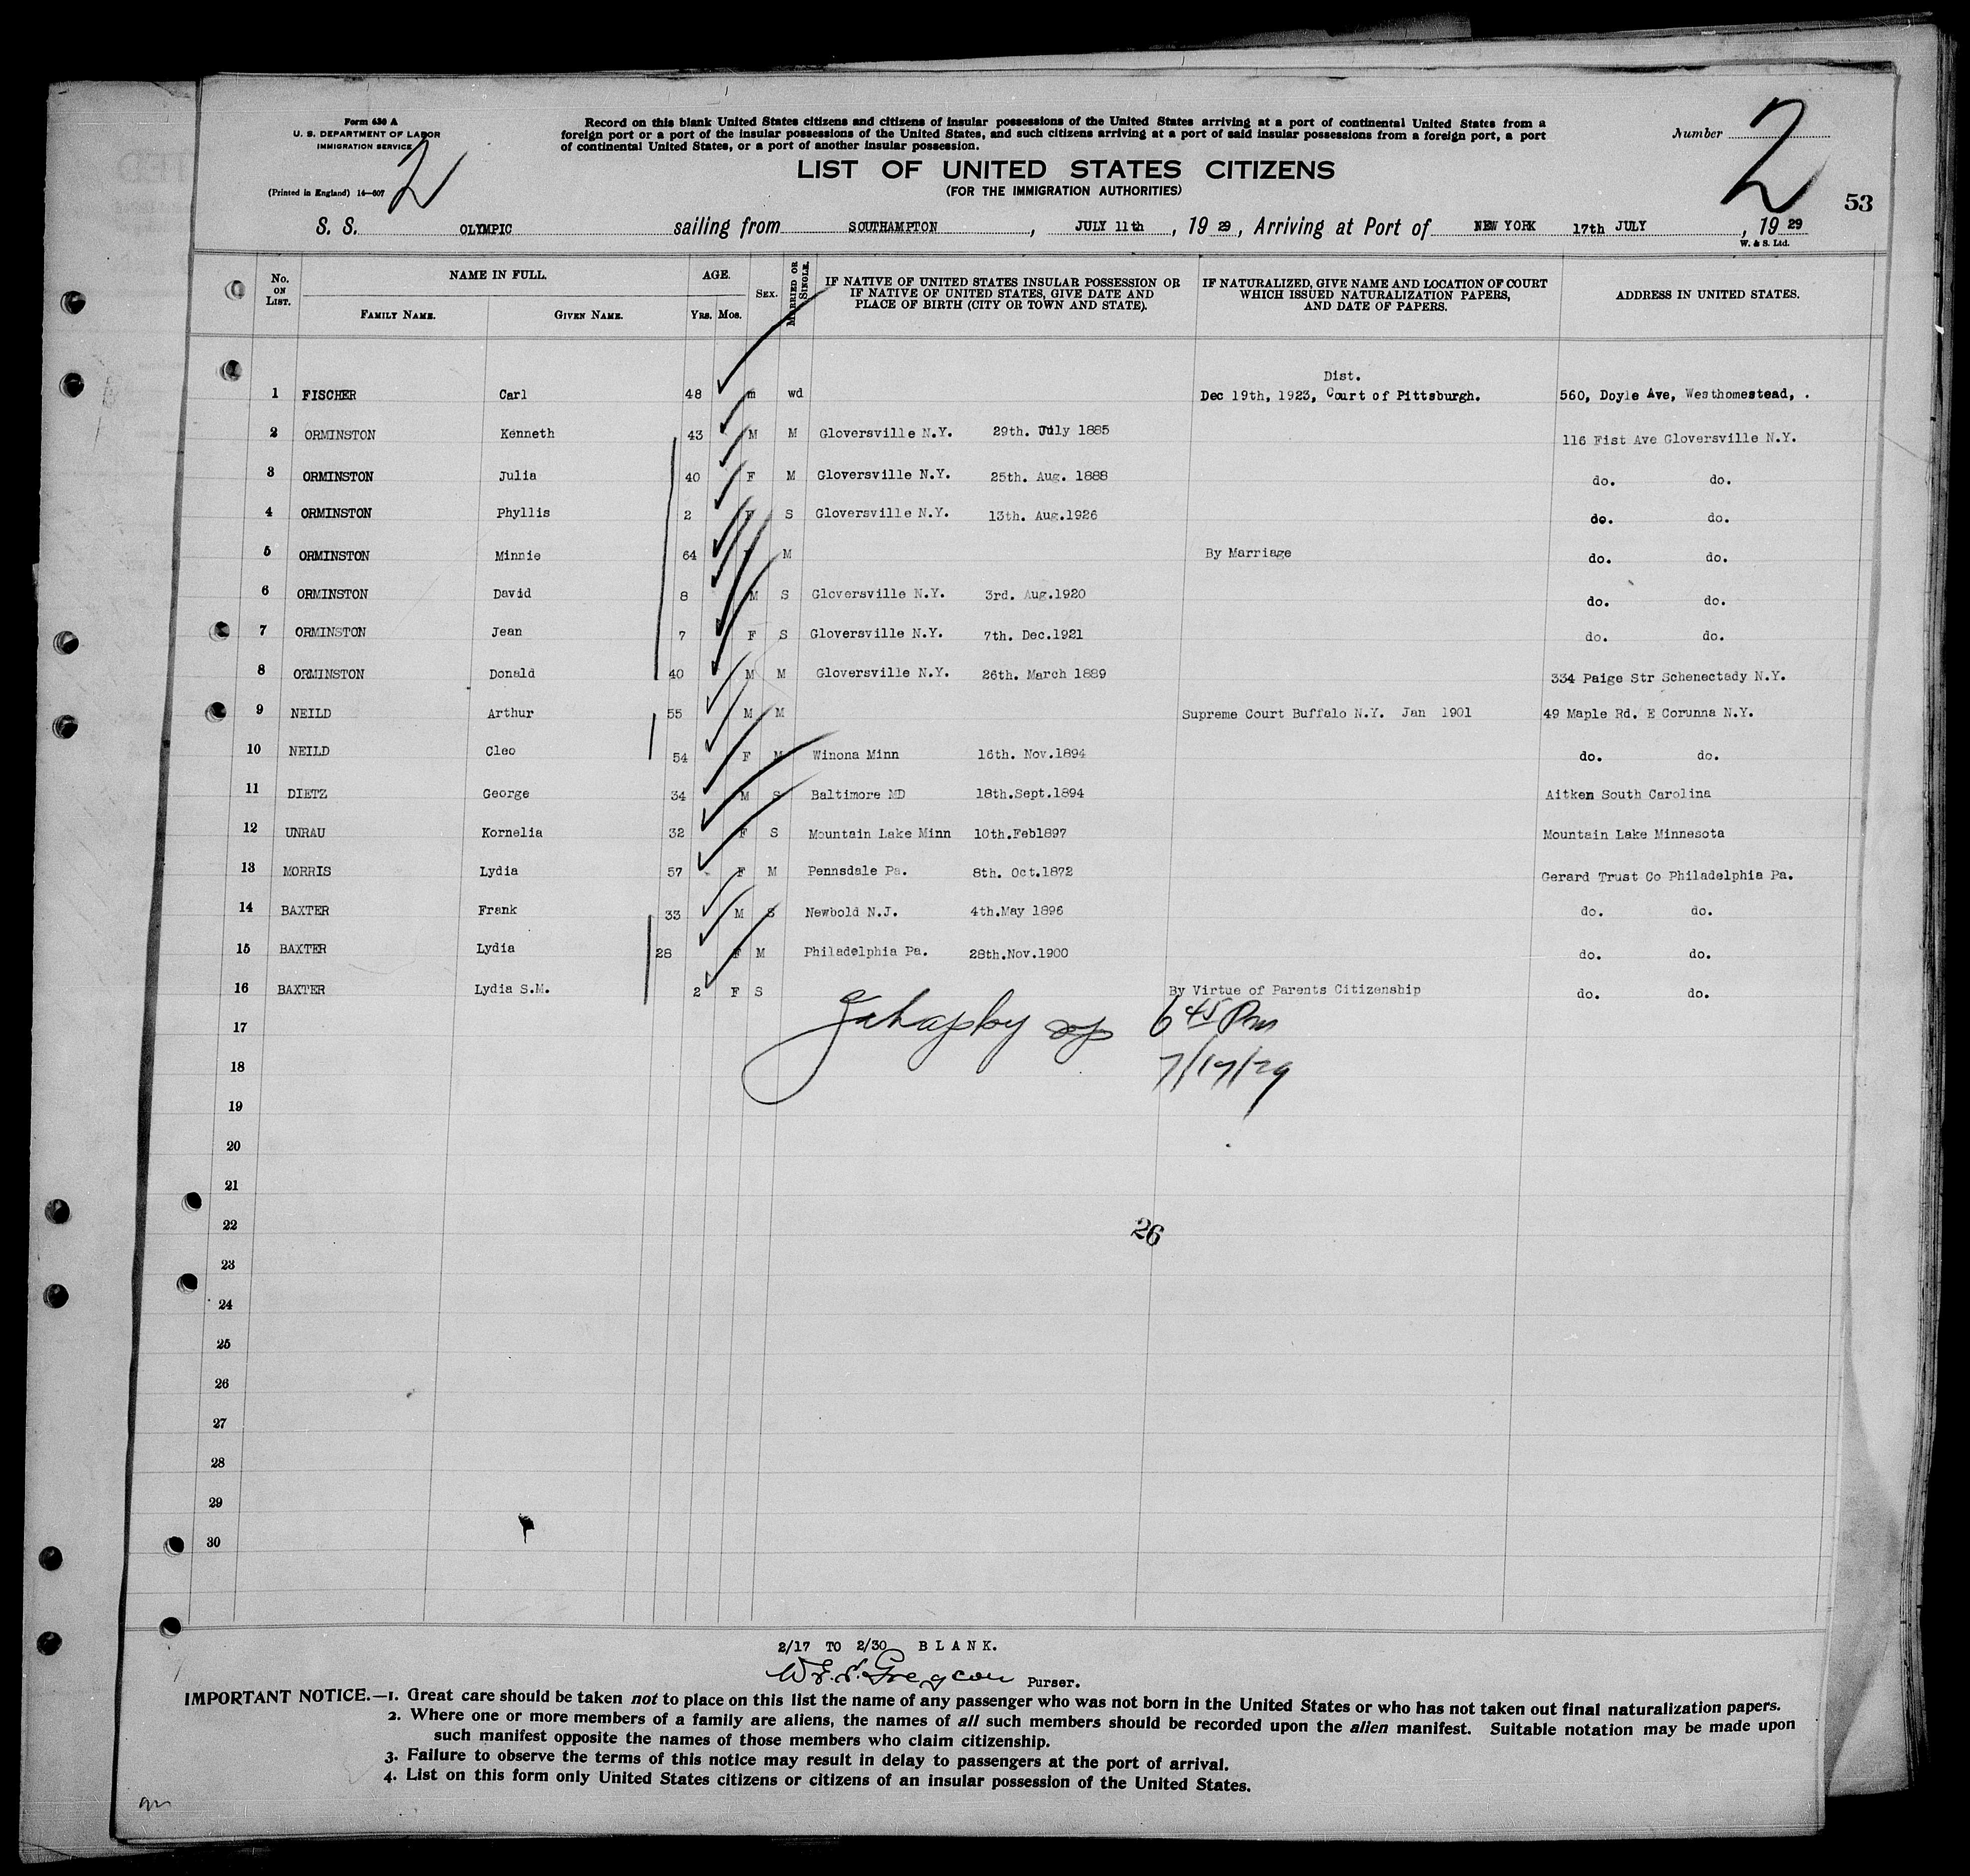 Form 630 A
U. S. DEPARTMENT OF LABOR
IMMIGRATION SERVICE
(Printed in England) 14—607
2
Record on this blank United States citizens and citizens of insular possessions of the United States arriving at a port of continental United States from a
foreign port or a port of the insular possessions of the United States, and such citizens arriving at a port of said insular possessions from a foreign port, a port
of continental United States, or a port of another insular possession.
Number 2
LIST OF UNITED STATES CITIZENS
(FOR THE IMMIGRATION AUTHORITIES)
53
S. S. OLYMPIC sailing from SOUTHAMPTON, JULY 11th, 19 29, Arriving at Port of NEW YORK 17th JULY, 19 29
W. & S. Ltd.
No. ON LIST. NAME IN FULL. FAMILY NAME. GIVEN NAME. AGE. YRS. MOS. SEX. MARRIED OR SINGLE. IF NATIVE OF UNITED STATES INSULAR POSSESSION OR IF NATIVE OF UNITED STATES, GIVE DATE AND PLACE OF BIRTH (CITY OR TOWN AND STATE). IF NATURALIZED, GIVE NAME AND LOCATION OF COURT WHICH ISSUED NATURALIZATION PAPERS, AND DATE OF PAPERS. ADDRESS IN UNITED STATES.
Dist.
1 FISCHER Carl 48 m wd Dec 19th, 1923, Court of Pittsburgh. 560, Doyle Ave, Westhomestead, .
2 ORMINSTON Kenneth 43 M M Gloversville N.Y. 29th. July 1885 116 Fist Ave Gloversville N.Y.
3 ORMINSTON Julia 40 F M Gloversville N.Y. 25th. Aug. 1888 do. do.
4 ORMINSTON Phyllis 2 F S Gloversville N.Y. 13th. Aug.1926 do. do.
5 ORMINSTON Minnie 64 M By Marriage do. do.
6 ORMINSTON David 8 M S Gloversville N.Y. 3rd. Aug.1920 do. do.
7 ORMINSTON Jean 7 F S Gloversville N.Y. 7th. Dec.1921 do. do.
8 ORMINSTON Donald 40 M M Gloversville N.Y. 26th. March 1889 334 Paige Str Schenectady N.Y.
9 NEILD Arthur 55 M M Supreme Court Buffalo N.Y. Jan 1901 49 Maple Rd. E Corunna N.Y.
10 NEILD Cleo 54 F M Winona Minn 16th. Nov.1894 do. do.
11 DIETZ George 34 M S Baltimore MD 18th.Sept.1894 Aitken South Carolina
12 UNRAU Kornelia 32 F S Mountain Lake Minn 10th.Feb1897 Mountain Lake Minnesota
13 MORRIS Lydia 57 F M Pennsdale Pa. 8th. Oct.1872 Gerard Trust Co Philadelphia Pa.
14 BAXTER Frank 33 M S Newbold N.J. 4th.May 1896 do. do.
15 BAXTER Lydia 28 F M Philadelphia Pa. 28th.Nov.1900 do. do.
16 BAXTER Lydia S.M. 2 F S By Virtue of Parents Citizenship do. do.
17 6 45 Pm
18 7/17/29
19
20
21
22 26
23
24
25
26
27
28
29
30
2/17 TO 2/30 BLANK.
Purser.
IMPORTANT NOTICE.—1. Great care should be taken not to place on this list the name of any passenger who was not born in the United States or who has not taken out final naturalization papers.
2. Where one or more members of a family are aliens, the names of all such members should be recorded upon the alien manifest. Suitable notation may be made upon
such manifest opposite the names of those members who claim citizenship.
3. Failure to observe the terms of this notice may result in delay to passengers at the port of arrival.
4. List on this form only United States citizens or citizens of an insular possession of the United States.